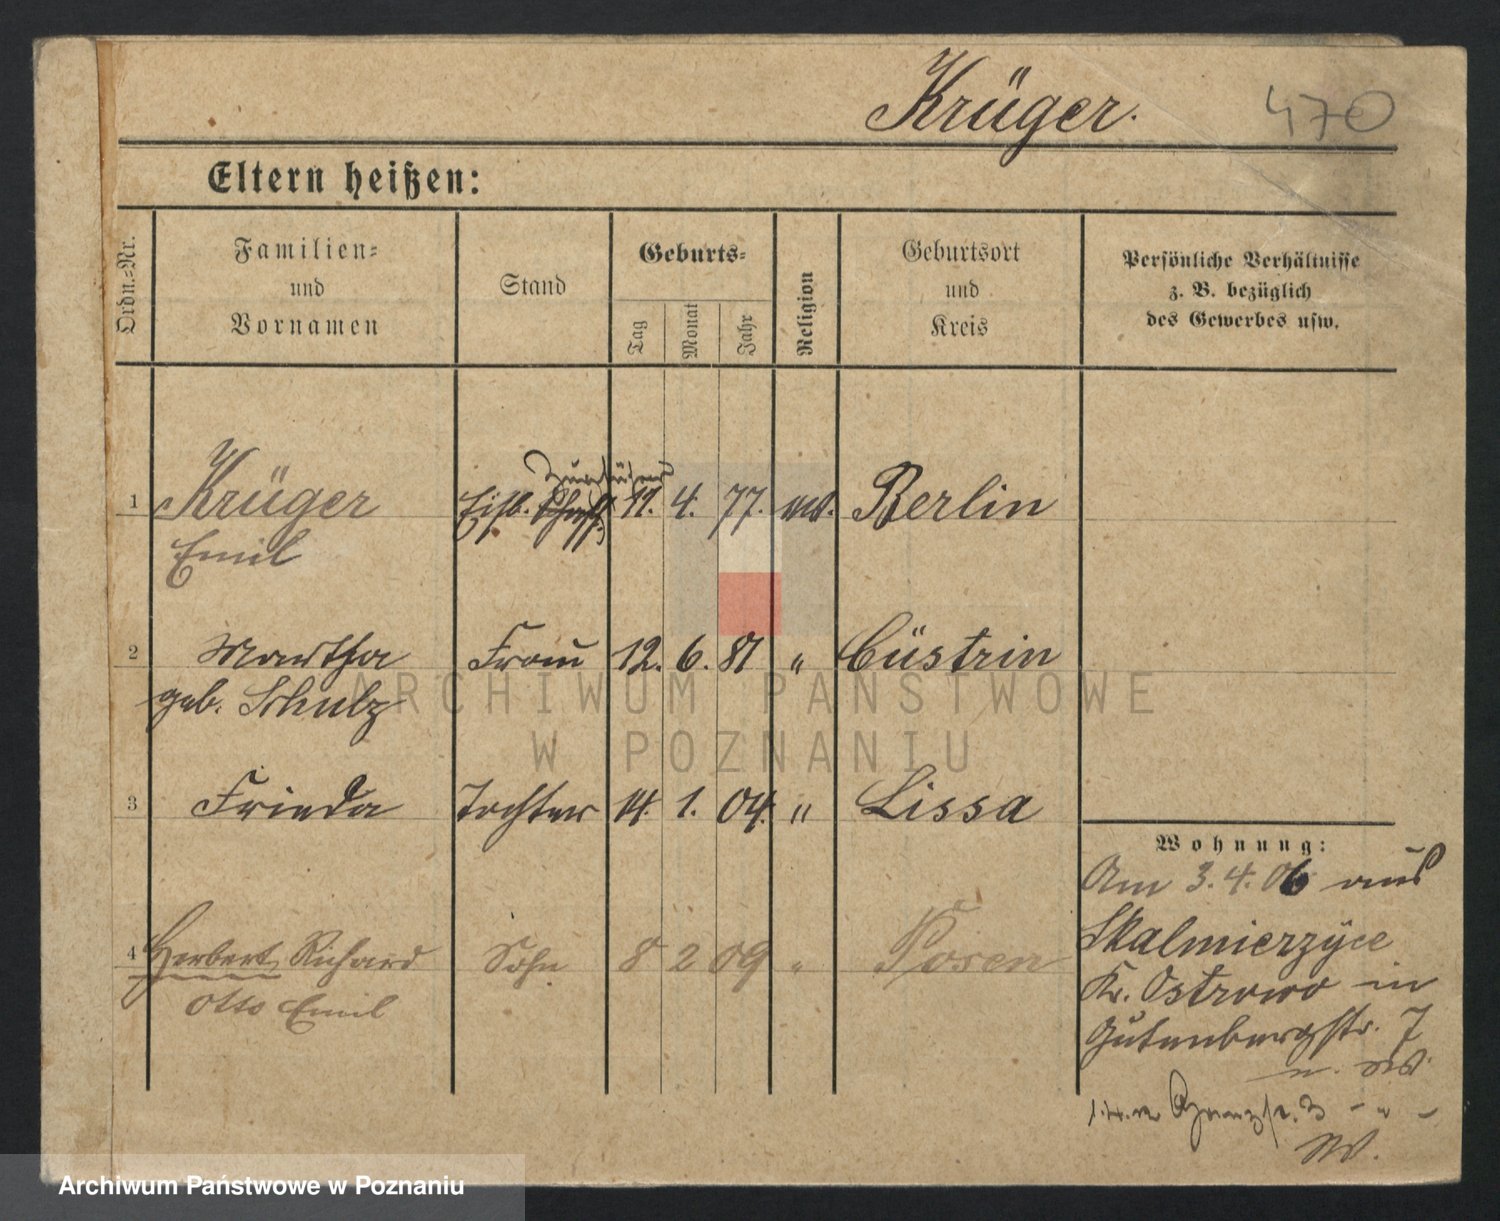 Krüger.
470
Eltern heißen:
Ordn.-Nr.
Familien-
und
Vornamen
Stand
Geburts-
Tag
Monat
Jahr
Religion
Geburtsort
und
Kreis
Persönliche Verhältnisse
z. B. bezüglich
des Gewerbes usw.
Zugführer
1 Krüger Eisb. 11. 4. 77. Berlin
Emil
2 Martha Frau 12. 6. 81 " Cüstrin
geb. Schulz
3 Frieda Tochter 14. 1. 04. " Lissa
Wohnung:
Am 3.4.06 aus
Skalmierzyce
Kr. Ostrowo in
Gutenbergstr. 7
4 Herbert Richard Sohn 8 2 09 " Posen
Otto Emil
ARCHIWUM PAŃSTWOWE
W POZNANIU
Archiwum Państwowe w Poznaniu